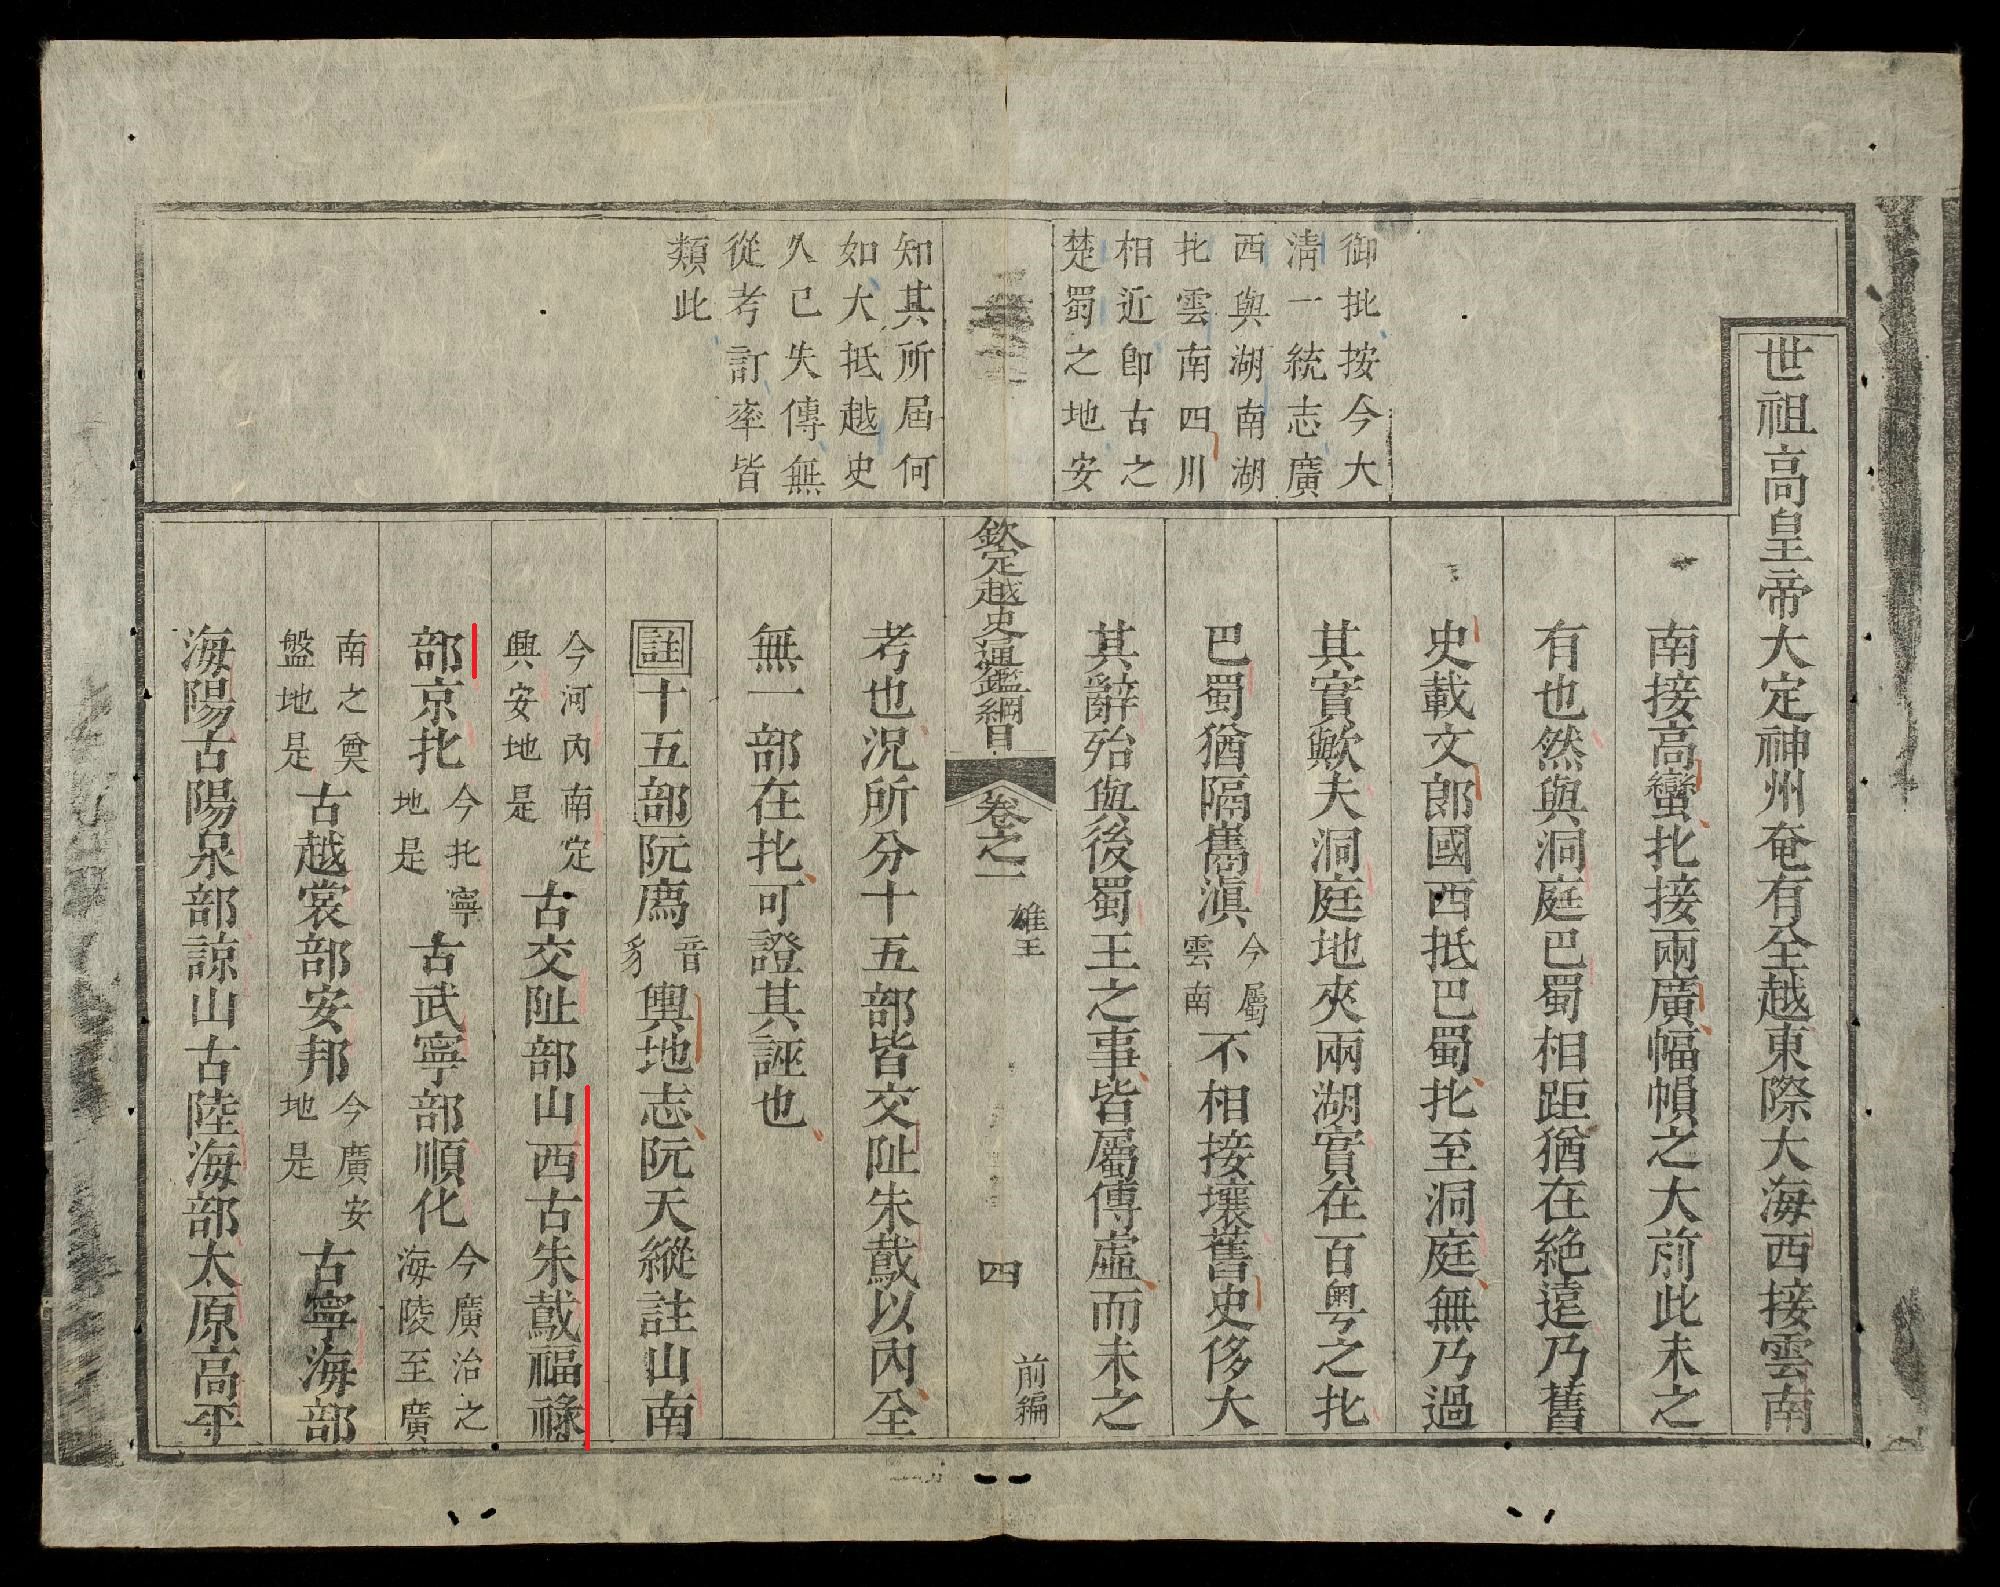 世祖高皇帝大定神州奄有全越東際大海西接雲南
南接高蠻北接兩廣幅幀之大前此未之
有也然與洞庭巴蜀相距猶在絕遠乃舊
史載文郎國西抵巴蜀北至洞庭無乃過
其實歟夫洞庭地夾兩湖實在百粤之北
巴蜀猶隔雟滇今屬雲南不相接壤舊史侈大
其辭殆與後蜀王之事皆屬傳虛而未之
御批按今大
淸一統志廣
西與湖南湖
北雲南四川
相近卽古之
楚蜀之地安
欽定越史通鑑綱目
卷之一
雄王
四
前編
知其所屆何
如大抵越史
久已失傳無
從考訂率皆
類此
考也況所分十五部皆交阯朱鳶以內全
無一部在北可證其誣也
註十五部阮廌音豸輿地志阮天縱註山南
今河內南定興安地是古交阯部山西古朱鳶福祿
部京北今北寧地是古武寧部順化今廣治之海陵至廣
南之奠盤地是古越裳部安邦今廣安地是古寧海部
海陽古陽泉部諒山古陸海部太原高平